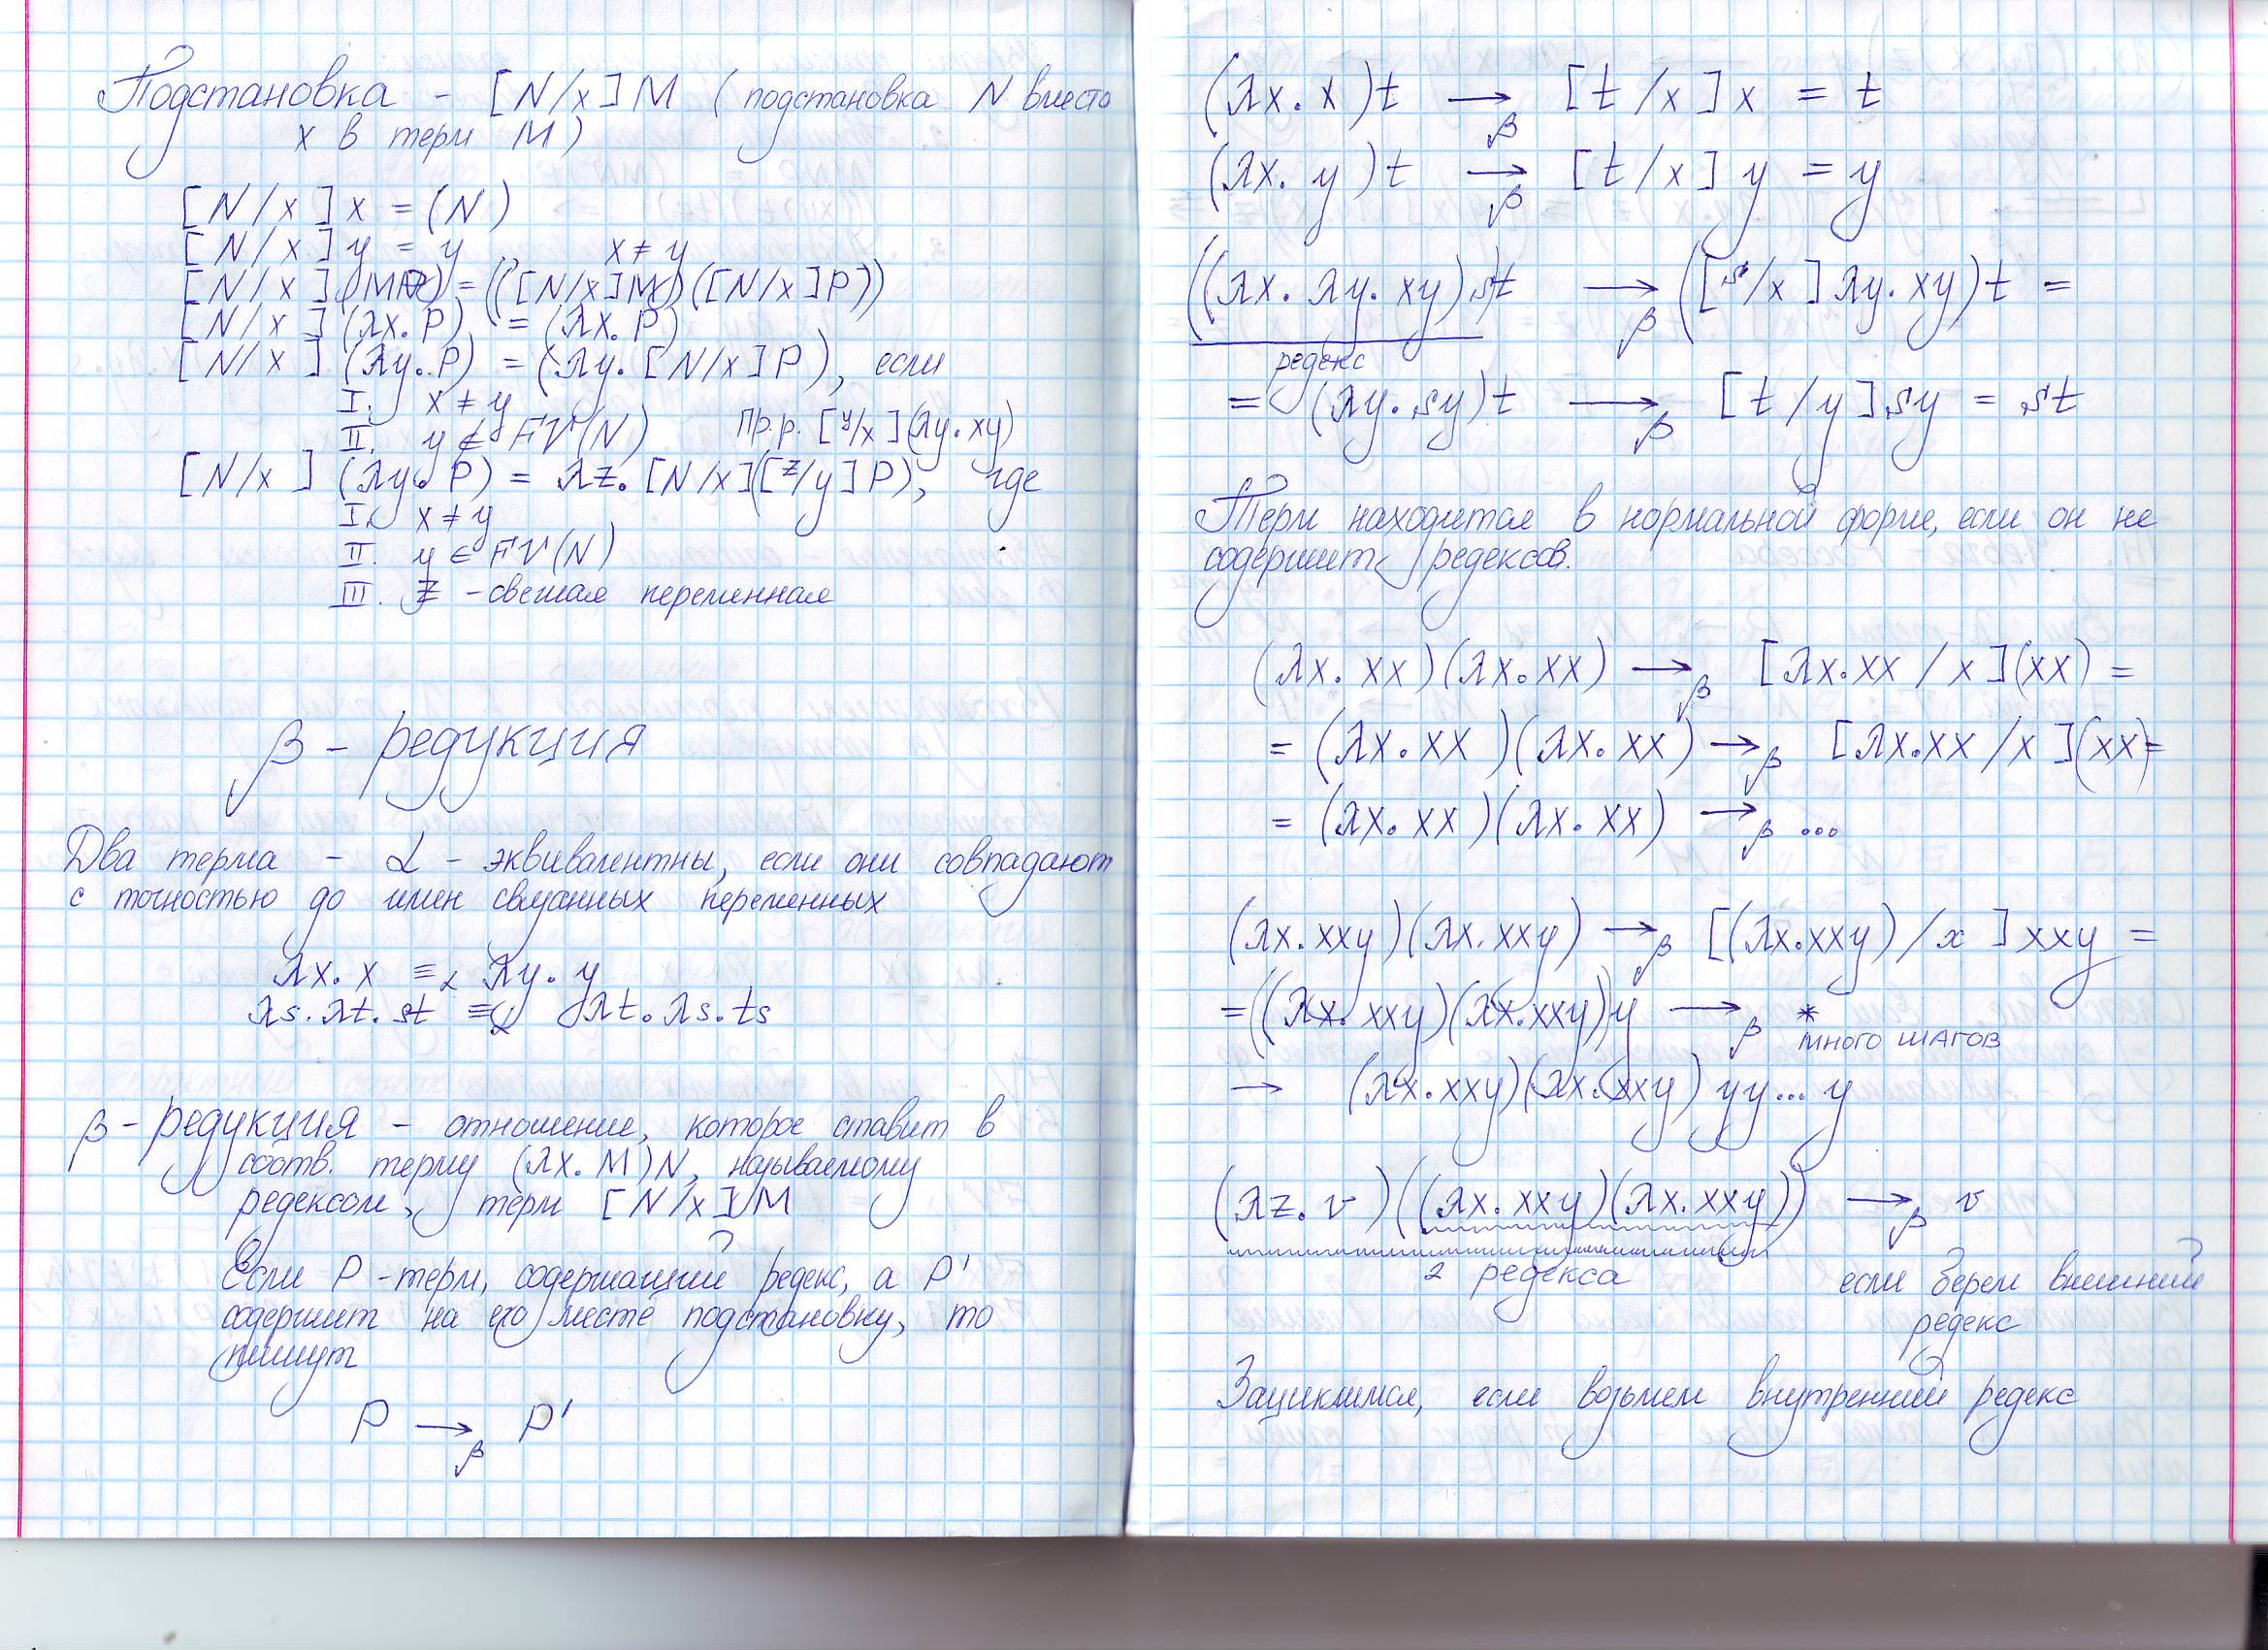 Подстановка - [N/x]M (подстановка N вместо
x в терм M)
[N/x]x = (N)
[N/x]y = y, x ≠ y
[N/x](MP) = (([N/x]M)([N/x]P))
[N/x](λx.P) = (λx.P)
[N/x](λy.P) = (λy.[N/x]P), если
I. x ≠ y
II. y ∉ FV(N) Пр.р. [y/x](λy.xy)
[N/x](λy.P) = λz.[N/x]([z/y]P), где
I. x ≠ y
II. y ∈ FV(N)
III. z - свежая переменная
β - редукция
Два терма - α - эквивалентны, если они совпадают
с точностью до имен связанных переменных
λx.x ≡α λy.y
λs.λt.st ≡α λt.λs.ts
β - редукция - отношение, которое ставит в
соотв. терму (λx.M)N, называемому
редексом, терм [N/x]M
Если P - терм, содержащий редекс, а P'
содержит на его месте подстановку, то
пишут
P →β P'
(λx.x)t →β [t/x]x = t
(λx.y)t →β [t/x]y = y
((λx.λy.xy)s)t →β ([s/x]λy.xy)t =
редекс
= (λy.sy)t →β [t/y]sy = st
Терм находится в нормальной форме, если он не
содержит редексов.
(λx.xx)(λx.xx) →β [λx.xx/x](xx) =
= (λx.xx)(λx.xx) →β [λx.xx/x](xx) =
= (λx.xx)(λx.xx) →β ...
(λx.xxy)(λx.xxy) →β [(λx.xxy)/x]xxy =
= ((λx.xxy)(λx.xxy))y →β *
много шагов
→ (λx.xxy)(λx.xxy)yy...y
(λz.v)((λx.xxy)(λx.xxy)) →β v
2 редекса если берем внешний
редекс
Зациклимся, если возьмем внутренний редекс